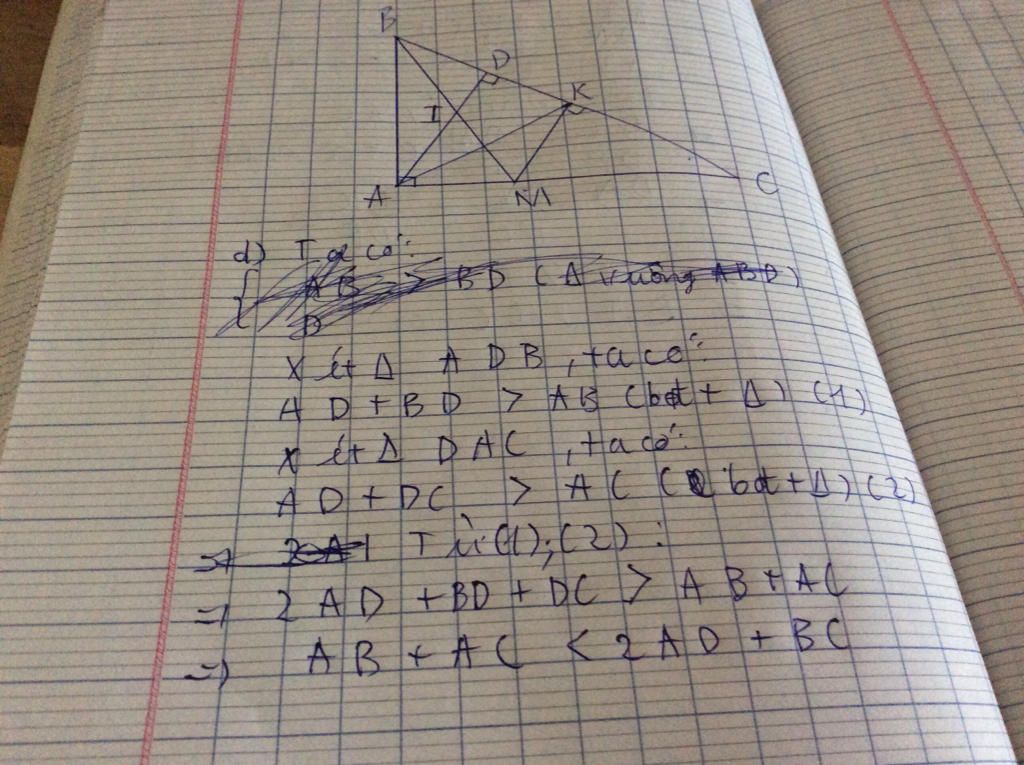 B
D
K
I
A
M
C
d) Ta có:
AB > BD (Δ vuông ABD)
D
Xét Δ ADB, ta có:
AD + BD > AB (bđt Δ) (1)
Xét Δ DAC, ta có:
AD + DC > AC (bđt Δ) (2)
=> Từ (1); (2):
=> 2AD + BD + DC > AB + AC
=> AB + AC < 2AD + BC